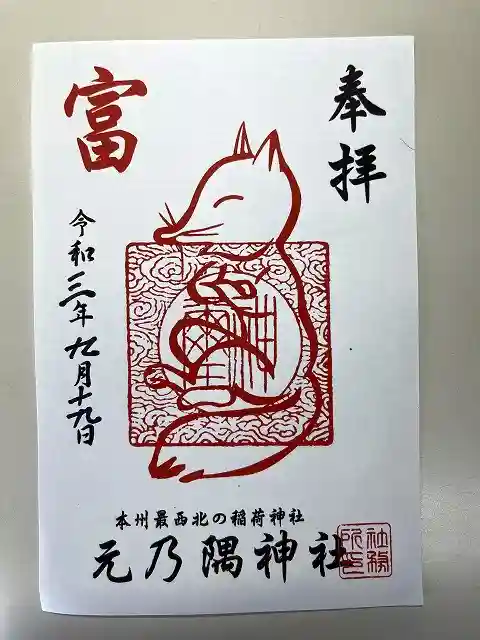 奉拝
富
令和三年九月十九日
本州最西北の稲荷神社
元乃隅神社
社務
所印